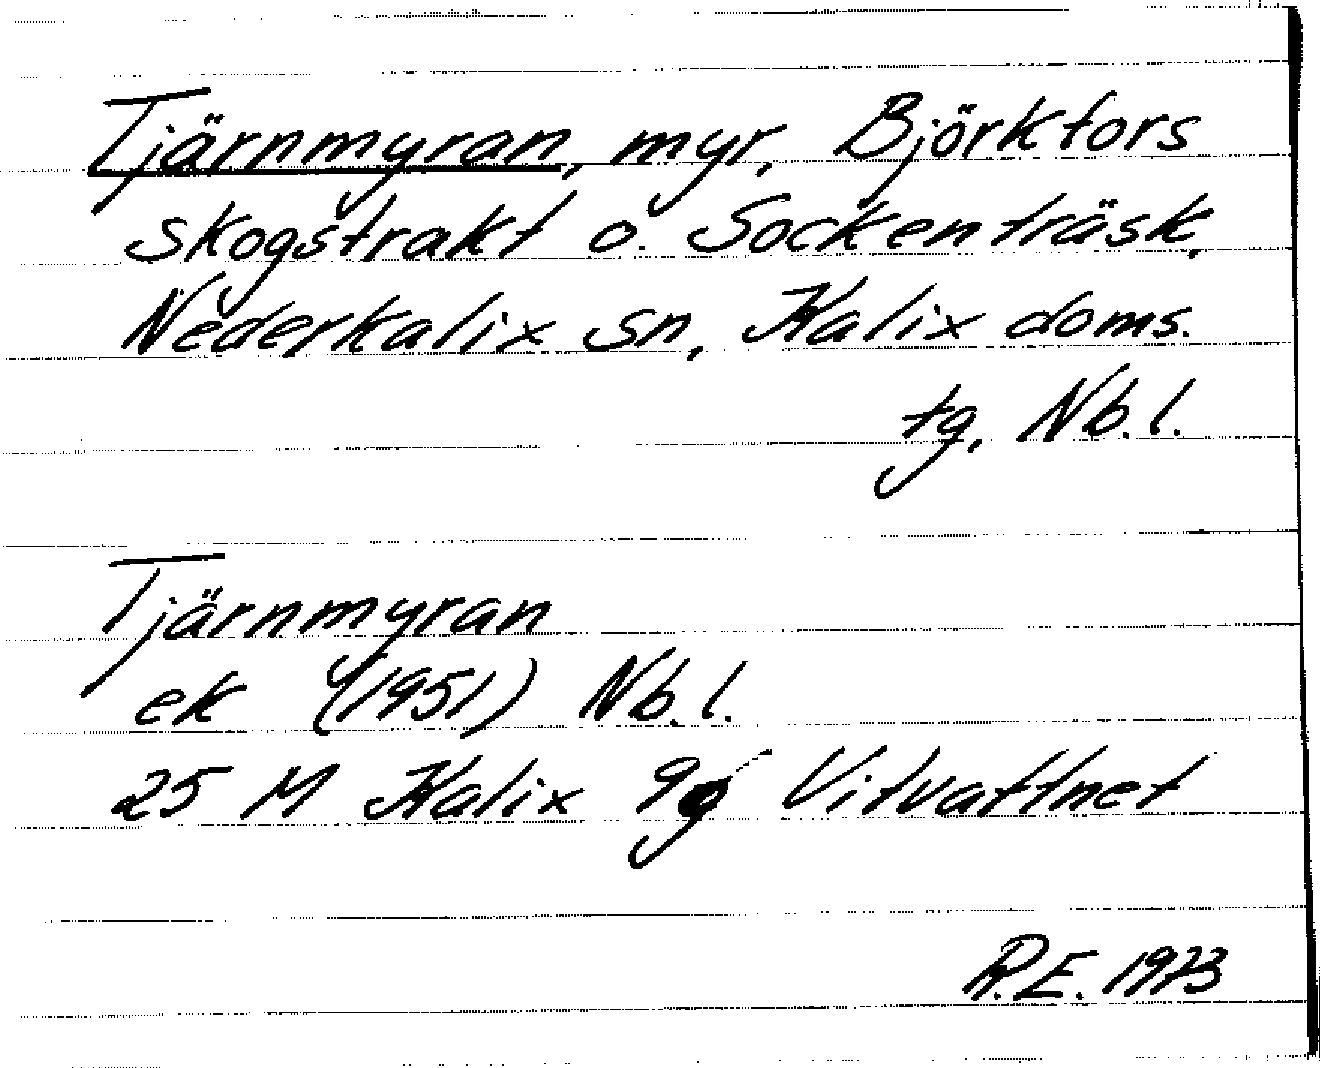 Tjärnmyran, myr, Björkfors
skogstrakt o. Sockenträsk,
Nederkalix sn, Kalix doms.
tg, Nb.l.
Tjärnmyran
ek (1951) Nb.l.
25 M Kalix 9g Vitvattnet
R.E. 1973